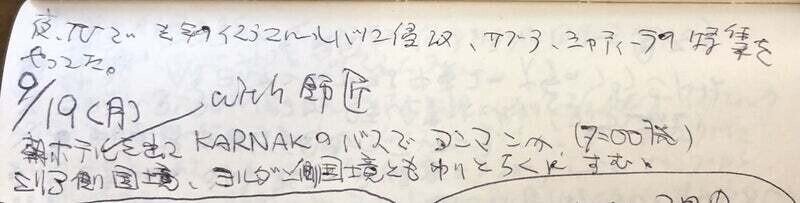 夜、TVでもイスラエールレバノン侵攻、サブラ、シャティーラの特集を
やってた。
9/19(月) with 師匠
朝ホテルを出て KARNAKのバスで アンマンへ (7=00発)
シリア側国境、ヨルダン側国境ともわりとらくにすむ。